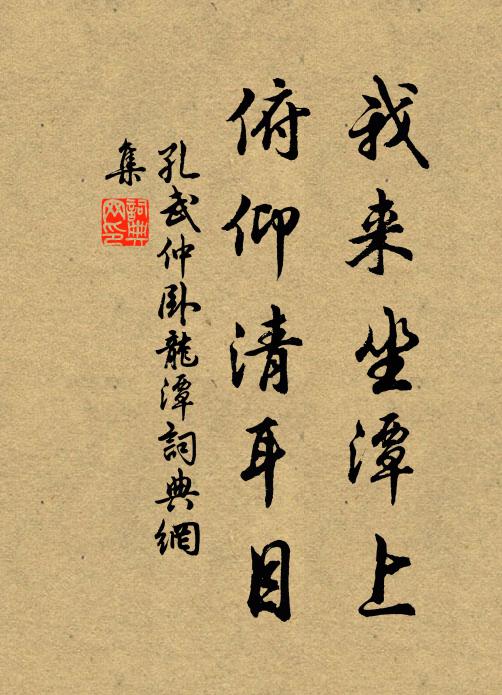 我来坐潭上
俯仰清耳目
孔武仲卧龍潭詞典網
集
詞典網印